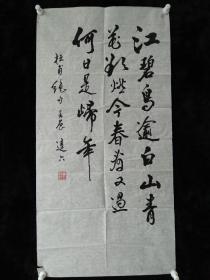 江碧鳥逾白山青
花欲燃今春看又過
何日是歸年
杜甫絶句壬辰